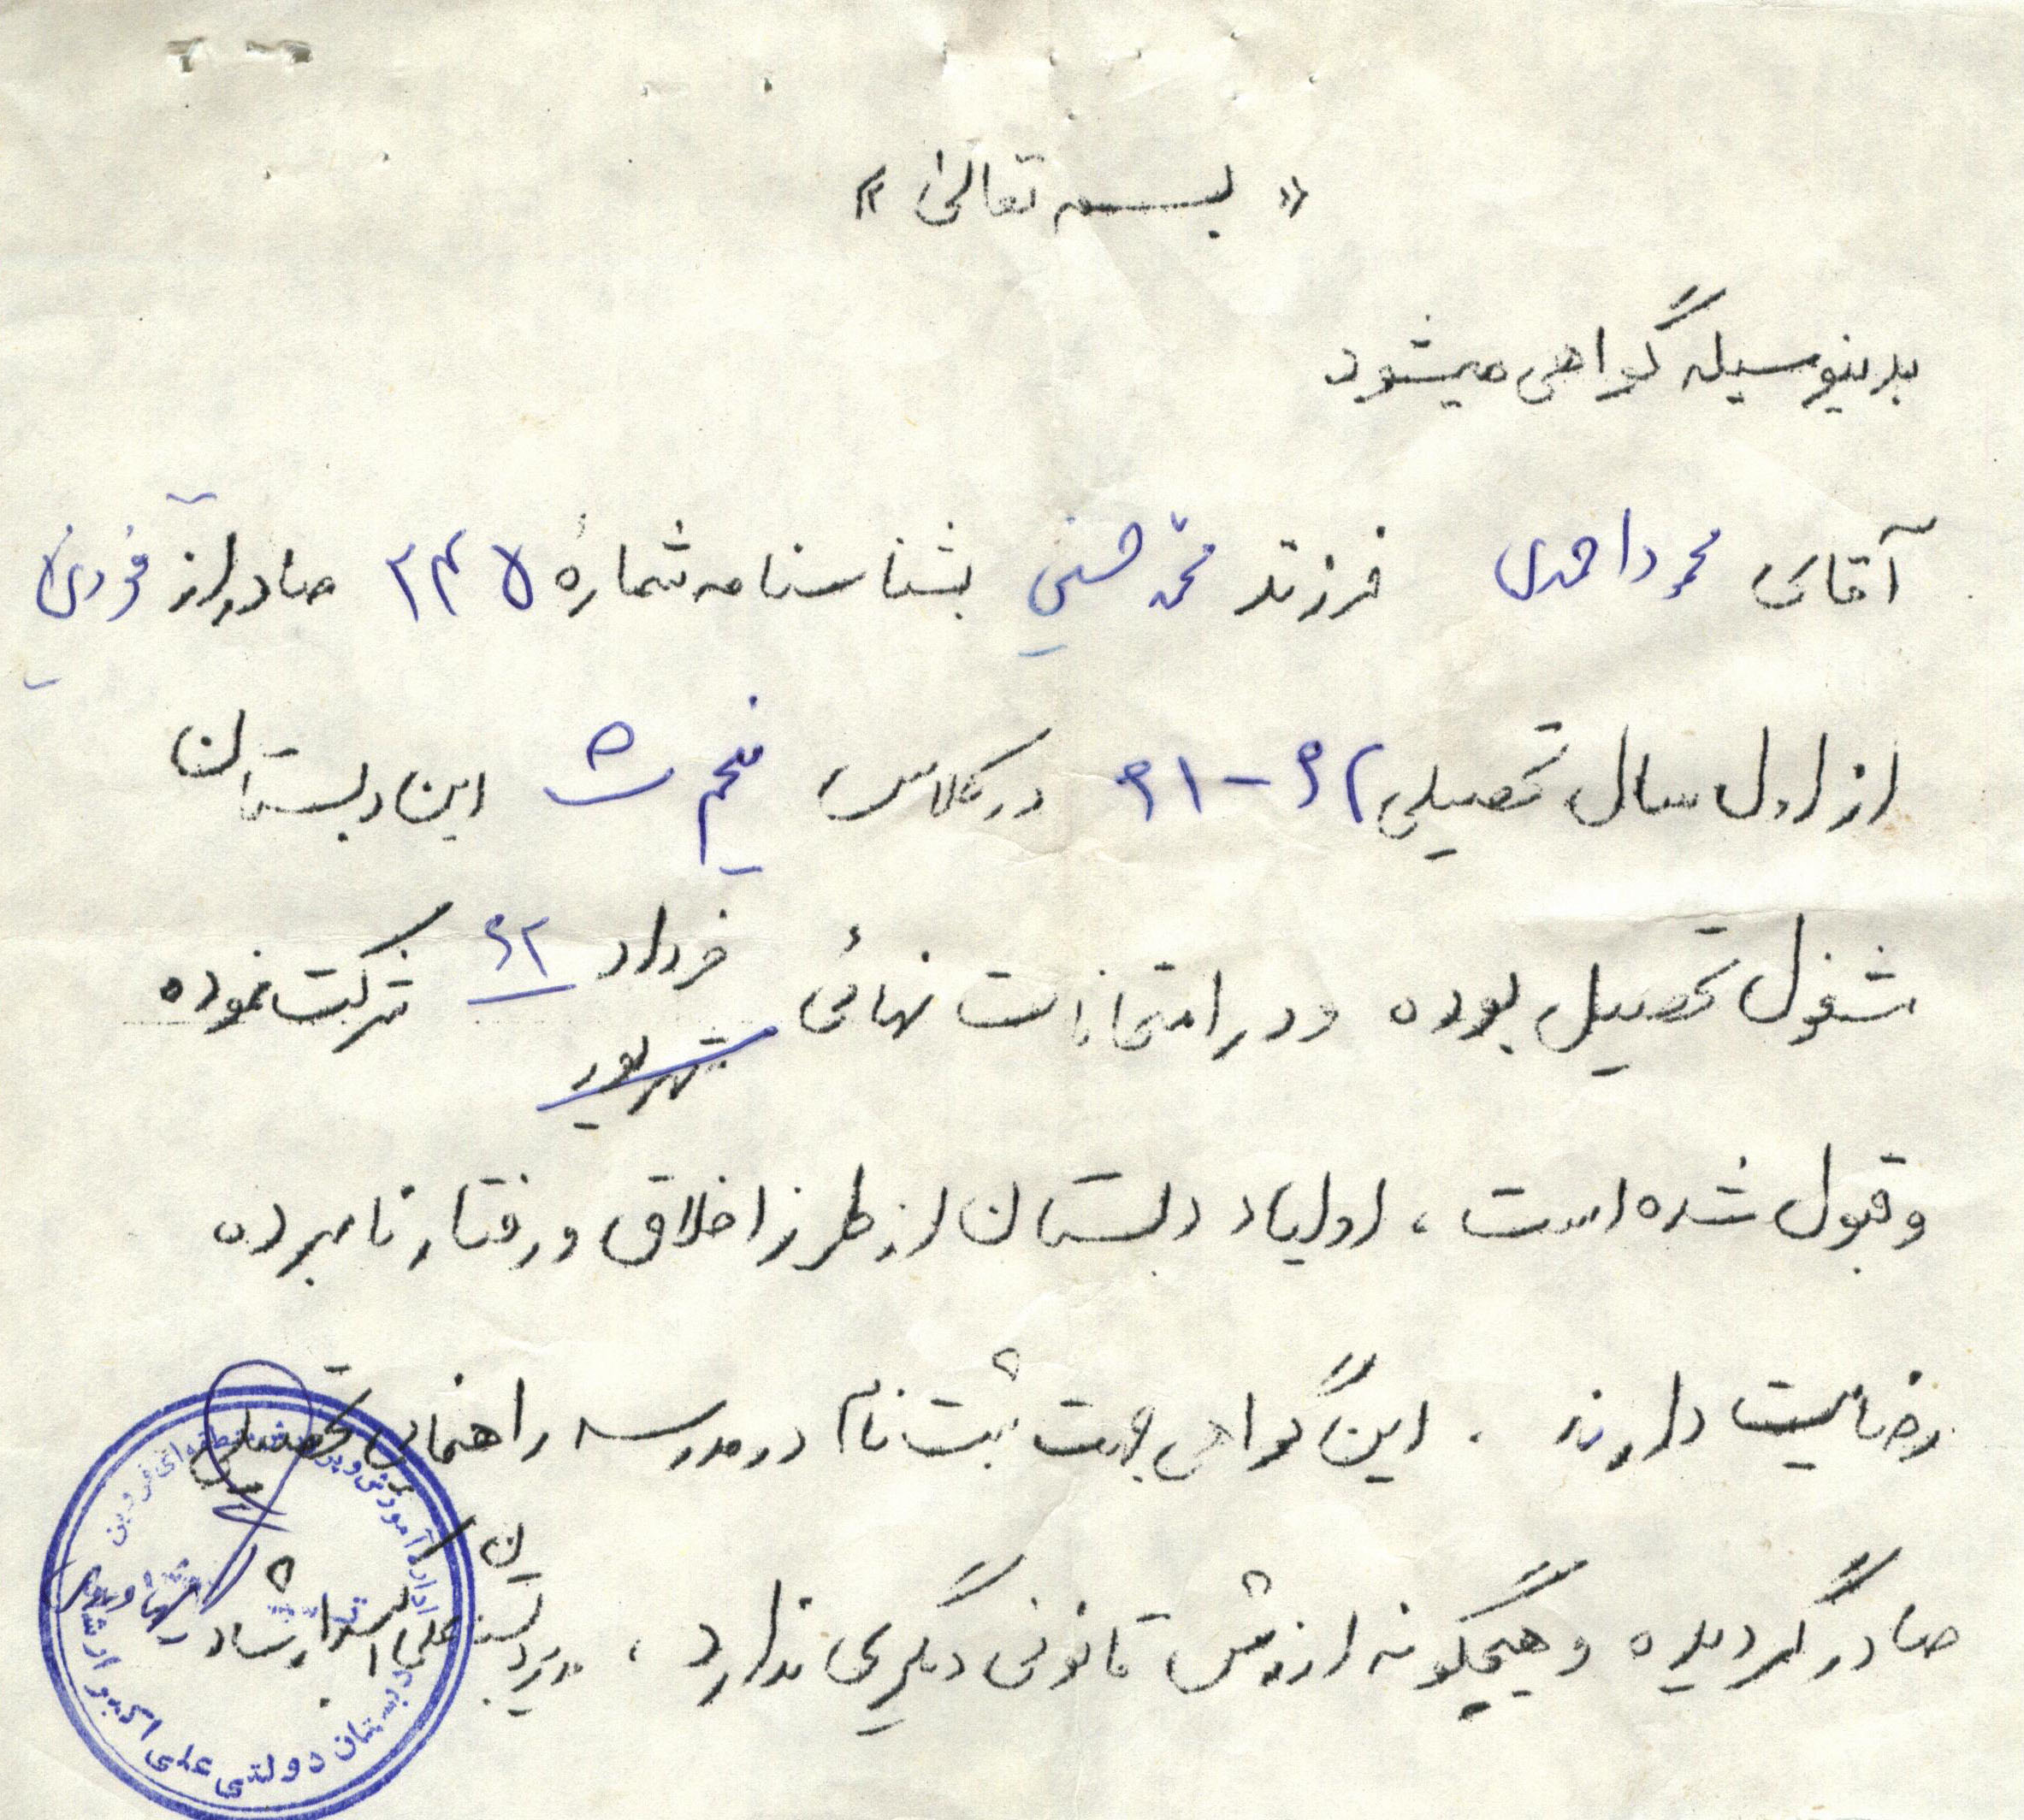 « بسمه تعالی »
بدینوسیله گواهی میشود
آقای محمود احمدی فرزند محمد حسنی بشناسنامه شمارهٔ ۲۴۵ صادر از
از اول سال تحصیلی ۶۲-۶۱ در کلاس پنجم ش این دبستان
مشغول تحصیل بوده و در امتحانات نهائی خرداد ۶۲ شرکت نموده
شهریور
و قبول شده است ، اولیاء دبستان از طرز اخلاق و رفتار نامبرده
رضایت دارند . این گواهی جهت ثبت نام در مدرسه راهنمائی تحصیلی
صادر گردیده و هیچگونه ارزش قانونی دیگری ندارد ، مدیر دبستان علی اکبر ارشاد
اداره آموزش و پرورش منطقه‌ای قزوین
دبستان دولتی علی اکبر ارشاد